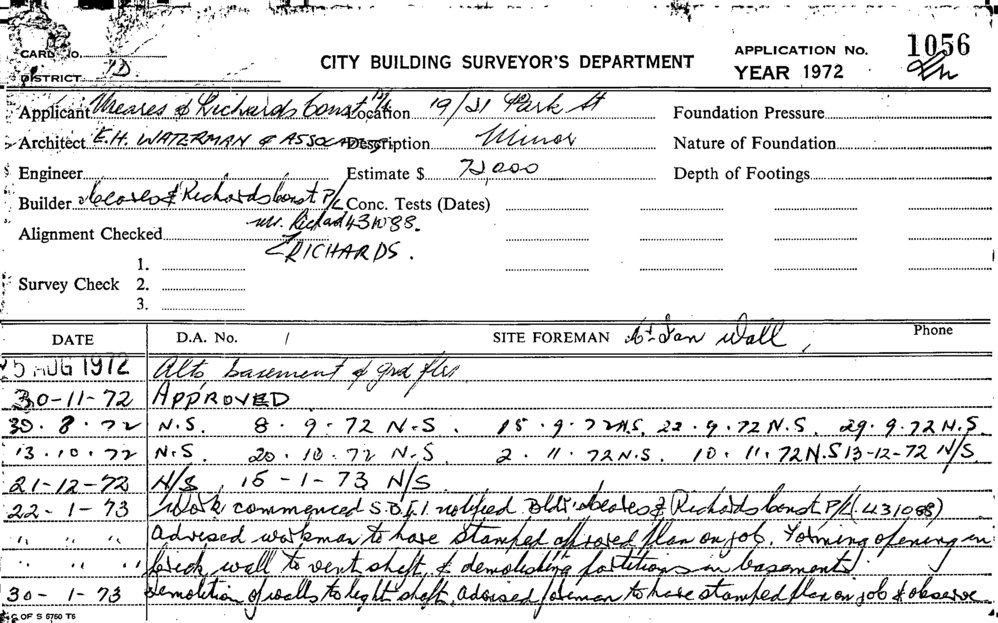 CARD No.
DISTRICT 1D
CITY BUILDING SURVEYOR'S DEPARTMENT
APPLICATION No. 1056
YEAR 1972
Applicant Meares & Richards Const P/L Location 19/31 Park St
Foundation Pressure
Architect E.H. WATERMAN & ASSOCIATES Description Minor
Nature of Foundation
Engineer Estimate $ 72,000
Depth of Footings
Builder Meares & Richards Const P/L Conc. Tests (Dates)
Mr. Richad 431088.
Alignment Checked
RICHARDS.
1.
Survey Check 2.
3.
DATE D.A. No. / SITE FOREMAN Ian Wall Phone
25 AUG 1972 Alts basement & grd flrs
30-11-72 APPROVED
30.8.72 N.S. 8.9.72 N.S. 15.9.72 N.S. 22.9.72 N.S. 29.9.72 N.S.
13.10.72 N.S. 20.10.72 N.S. 2.11.72 N.S. 10.11.72 N.S 13-12-72 N/S
21-12-72 N/S 15-1-73 N/S
22-1-73 Work commenced S.D.& I. notified Bldr Meares & Richards Const P/L (431088)
" " " Advised workman to have stamped approved plan on job. Forming opening in
" " " brick wall to vent shaft, & demolishing partitions in basement.
30-1-73 Demolition of walls to light shaft, advised foreman to have stamped plan on job & observe
C OF S 6750 T5